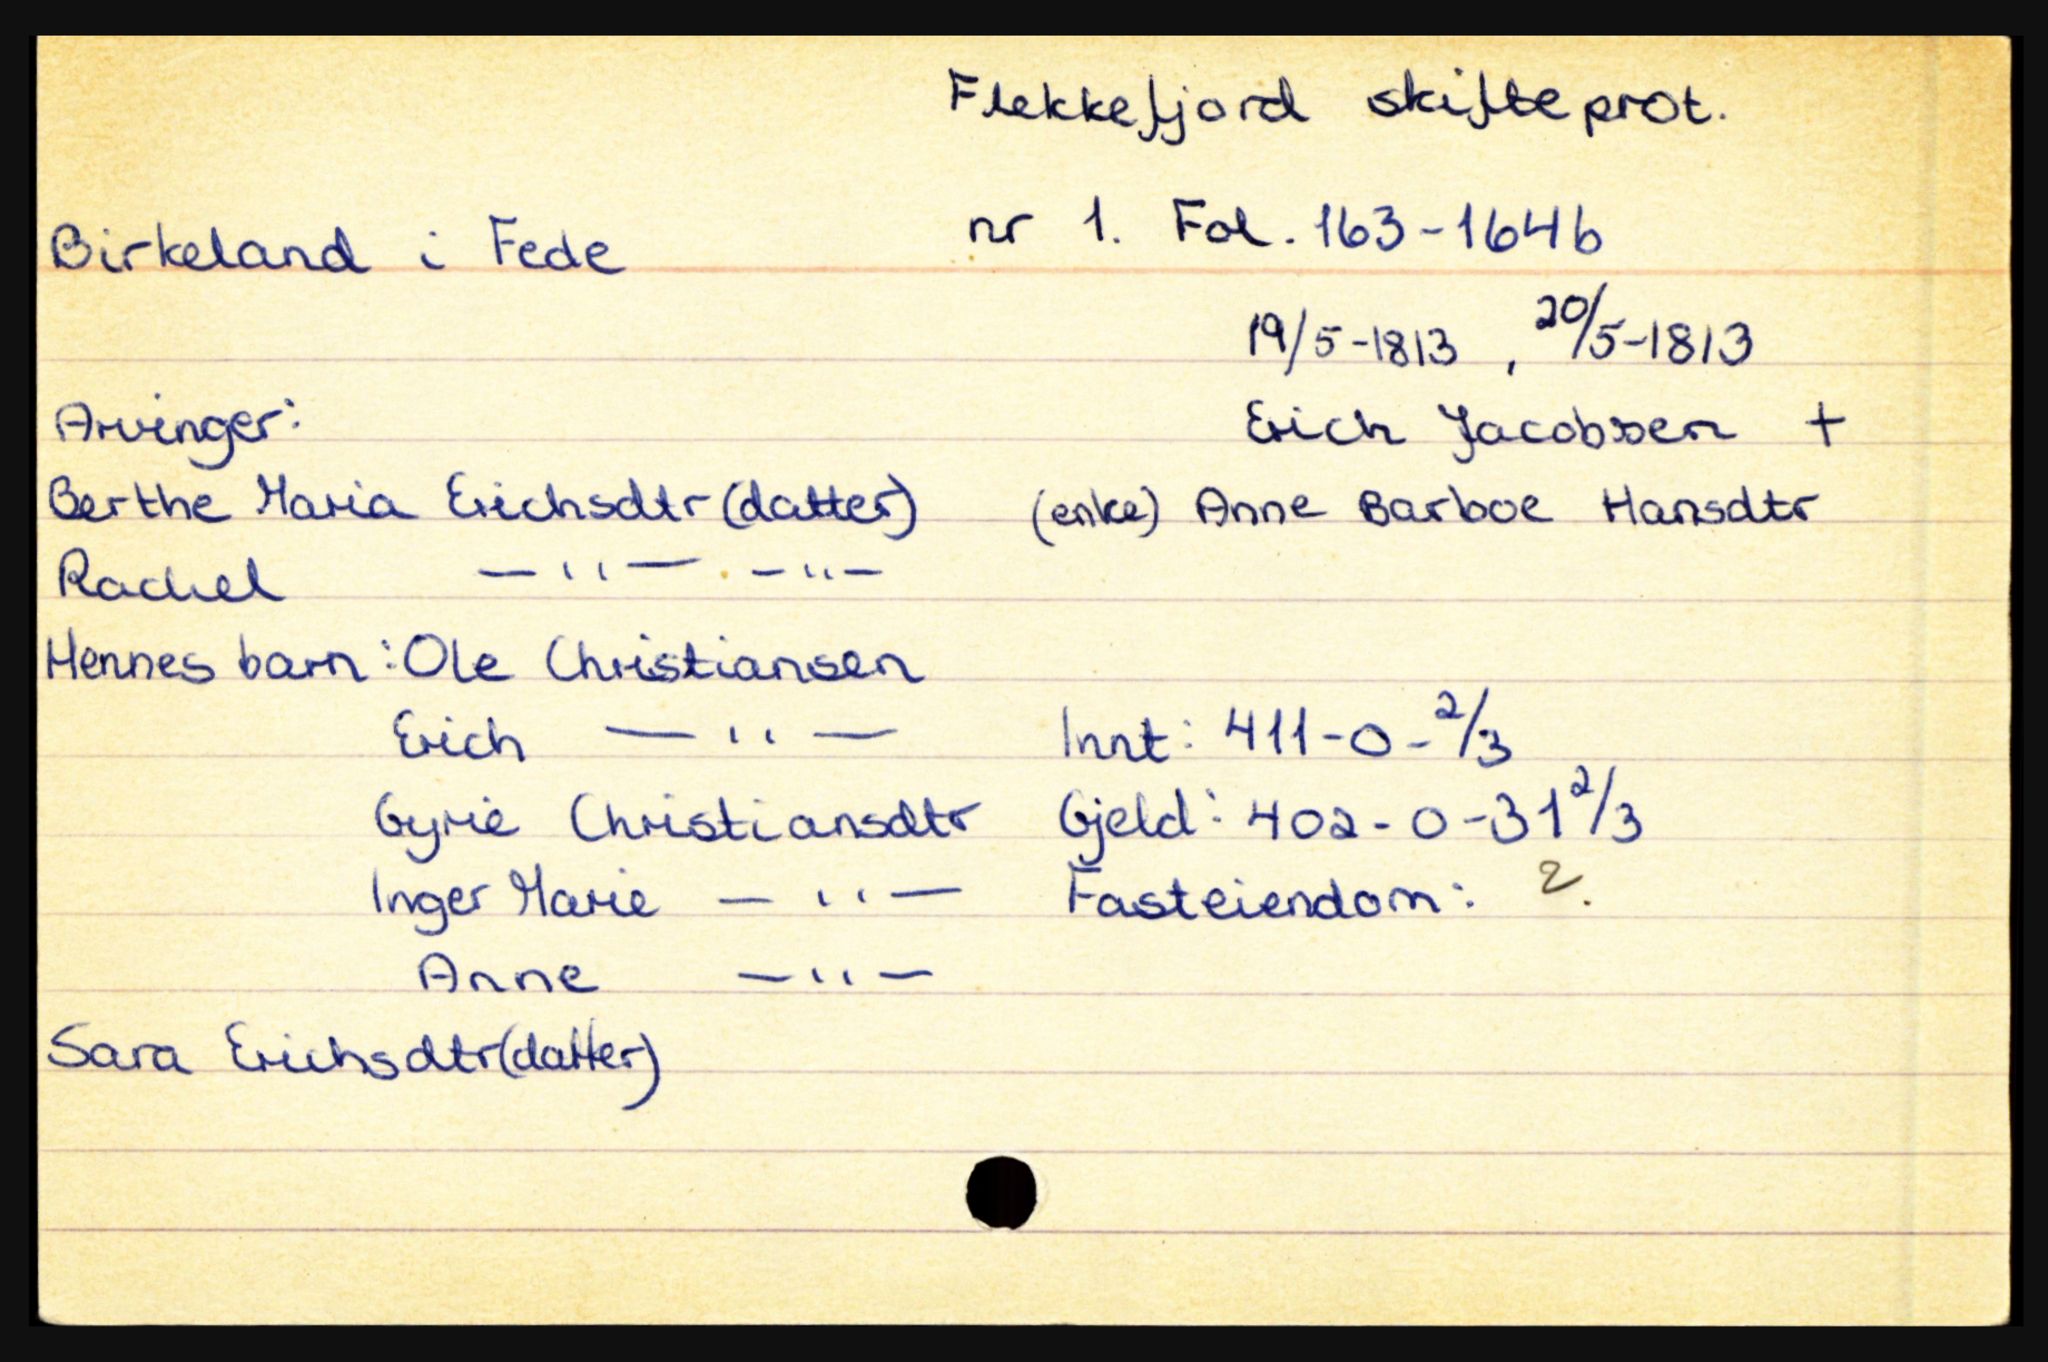 Flekkefjord skifteprot.
Birkeland i Fede nr 1. Fol. 163-164b
19/5-1813, 20/5-1813
Arvinger: Erich Jacobsen +
Berthe Maria Erichsdtr (datter) (enke) Anne Barboe Hansdtr
Rachel —"— —"—
Hennes barn: Ole Christiansen
Erich —"— Innt: 411-0-2/3
Gyrie Christiansdtr Gjeld: 402-0-31 2/3
Inger Marie —"— Fasteiendom: 2.
Anne —"—
Sara Erichsdtr (datter)